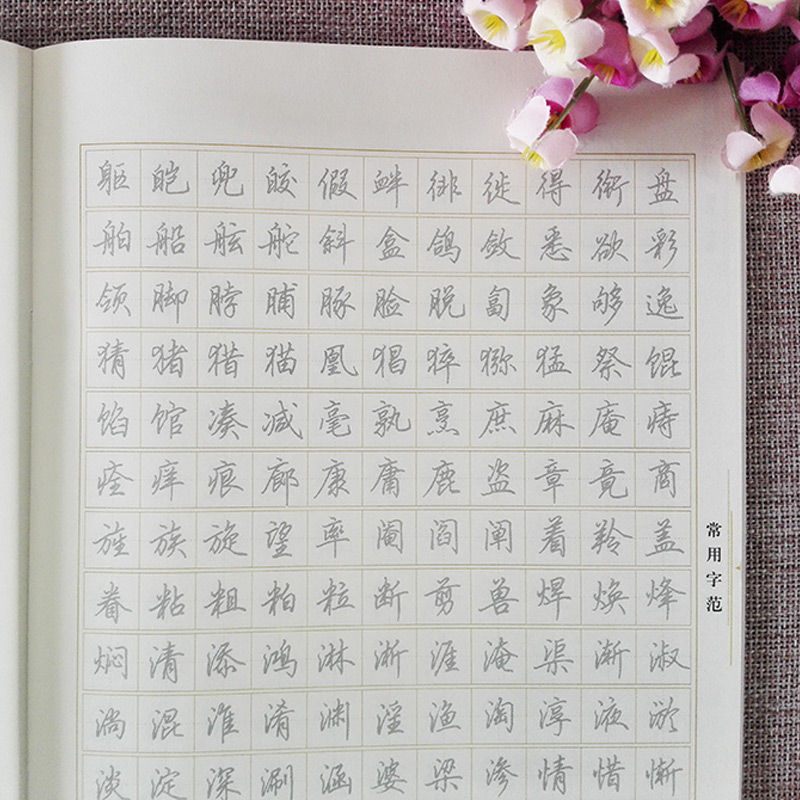 躯 皑 兜 皎 假 衅 徘 徙 得 衔 盘
舶 船 舷 舵 斜 盒 鸽 敛 悉 欲 彩
领 脚 脖 脯 豚 脸 脱 匐 象 够 逸
猜 猪 猎 猫 凰 猖 猝 猕 猛 祭 馄
馅 馆 凑 减 毫 孰 烹 庶 麻 庵 痔
痊 痒 痕 廊 康 庸 鹿 盗 章 竟 商
旌 族 旋 望 率 阉 阎 阐 着 羚 盖
眷 粘 粗 粕 粒 断 剪 兽 焊 焕 烽
焖 清 添 鸿 淋 淅 涯 淹 渠 渐 淑
淌 混 淮 淆 渊 淫 渔 淘 淳 液 淤
淡 淀 深 涮 涵 婆 梁 渗 情 惜 惭
常用字范